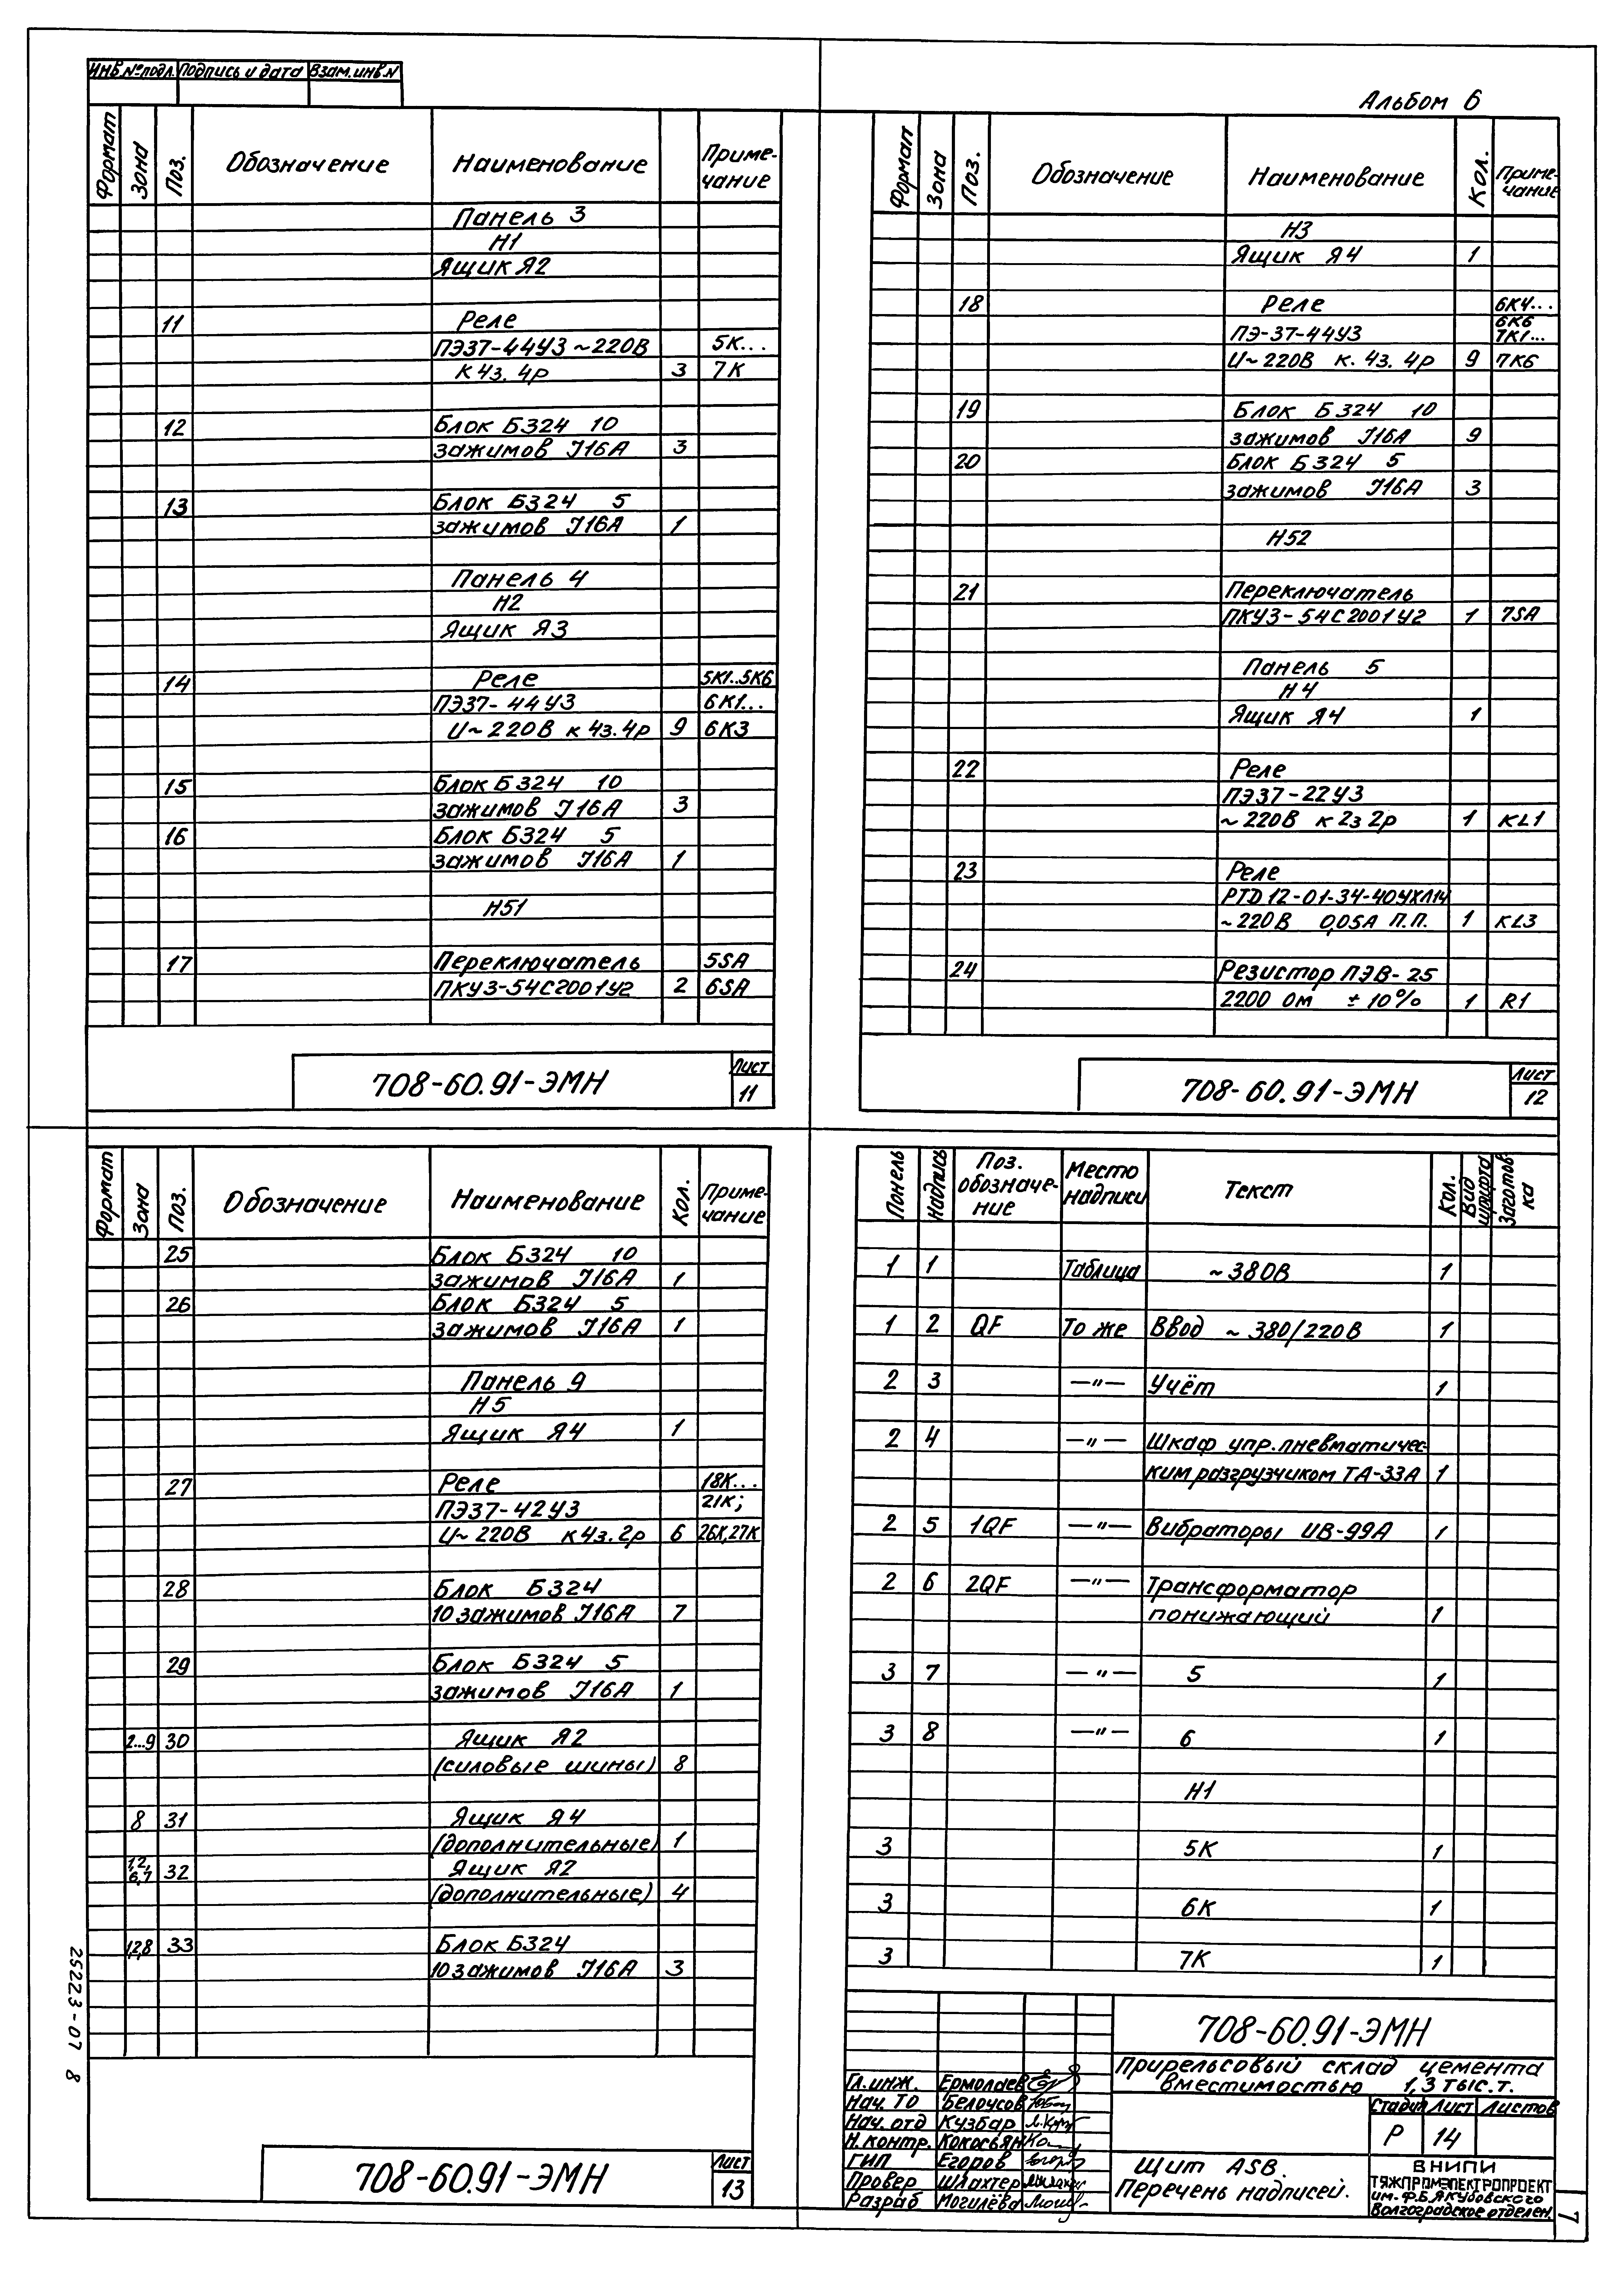 Инв.№подл. Подпись и дата Взам.инв.N
Альбом 6
Формат Зона Поз. Обозначение Наименование Приме-чание
Панель 3
Н1
Ящик Я2
11 Реле
ПЭ37-44У3 ~220В 5К...
К 4з. 4р 3 7К
12 Блок Б324 10
зажимов J16А 3
13 Блок Б324 5
зажимов J16А 1
Панель 4
Н2
Ящик Я3
14 Реле 5К1..5К6
ПЭ37-44У3 6К1...
U~220В к 4з.4р 9 6К3
15 Блок Б324 10
зажимов J16А 3
16 Блок Б324 5
зажимов J16А 1
Н51
17 Переключатель 5SA
ПКУ3-54С2001У2 2 6SA
708-60.91-ЭМН Лист 11
Формат Зона Поз. Обозначение Наименование Кол. Приме-чание
Н3
Ящик Я4 1
18 Реле 6К4...
6К6
ПЭ-37-44У3 7К1...
U~220В к. 4з. 4р 9 7К6
19 Блок Б324 10
зажимов J16А 9
20 Блок Б324 5
зажимов J16А 3
Н52
21 Переключатель
ПКУ3-54С2001У2 1 7SA
Панель 5
Н4
Ящик Я4 1
22 Реле
ПЭ37-22У3
~220В к 2з 2р 1 KL1
23 Реле
РТД12-01-34-40УХЛ14
~220В 0,05А п.п. 1 KL3
24 Резистор ПЭВ-25
2200 Ом ±10% 1 R1
708-60.91-ЭМН Лист 12
Формат Зона Поз. Обозначение Наименование Кол. Приме-чание
25 Блок Б324 10
зажимов J16А 1
26 Блок Б324 5
зажимов J16А 1
Панель 9
Н5
Ящик Я4 1
27 Реле 18К...
ПЭ37-42У3 21К;
U~220В к 4з.2р 6 26К,27К
28 Блок Б324
10 зажимов J16А 7
29 Блок Б324 5
зажимов J16А 1
2...9 30 Ящик Я2
(силовые шины) 8
8 31 Ящик Я4
(дополнительные) 1
1,2,
6,7 32 Ящик Я2
(дополнительные) 4
1,2,8 33 Блок Б324
10 зажимов J16А 3
25223-07 8
708-60.91-ЭМН Лист 13
Понель Надпись Поз. обозначе-ние Место надписи Текст Кол. Вид шрифта Заготов-ка
1 1 Таблица ~380В 1
1 2 QF То же Ввод ~380/220В 1
2 3 —"— Учёт 1
2 4 —"— Шкаф упр.пневматичес-
ким разгрузчиком ТА-33А 1
2 5 1QF —"— Вибраторы ИВ-99А 1
2 6 2QF —"— Трансформатор
понижающий 1
3 7 —"— 5 1
3 8 —"— 6 1
Н1
3 5К 1
3 6К 1
3 7К 1
708-60.91-ЭМН
Прирельсовый склад цемента
вместимостью 1,3 тыс.т.
Гл.инж. Ермолаев
Нач. ТО Белоусов
Нач. отд Кузбар
Н.контр. Кокосьян
ГИП Егоров
Провер Шлахтер
Разраб Могилёва
Стадия Лист Листов
Р 14
Щит ASB.
Перечень надписей.
ВНИПИ
ТЯЖПРОМЭЛЕКТРОПРОЕКТ
им. Ф.Б.Якубовского
Волгоградское отделен.
7